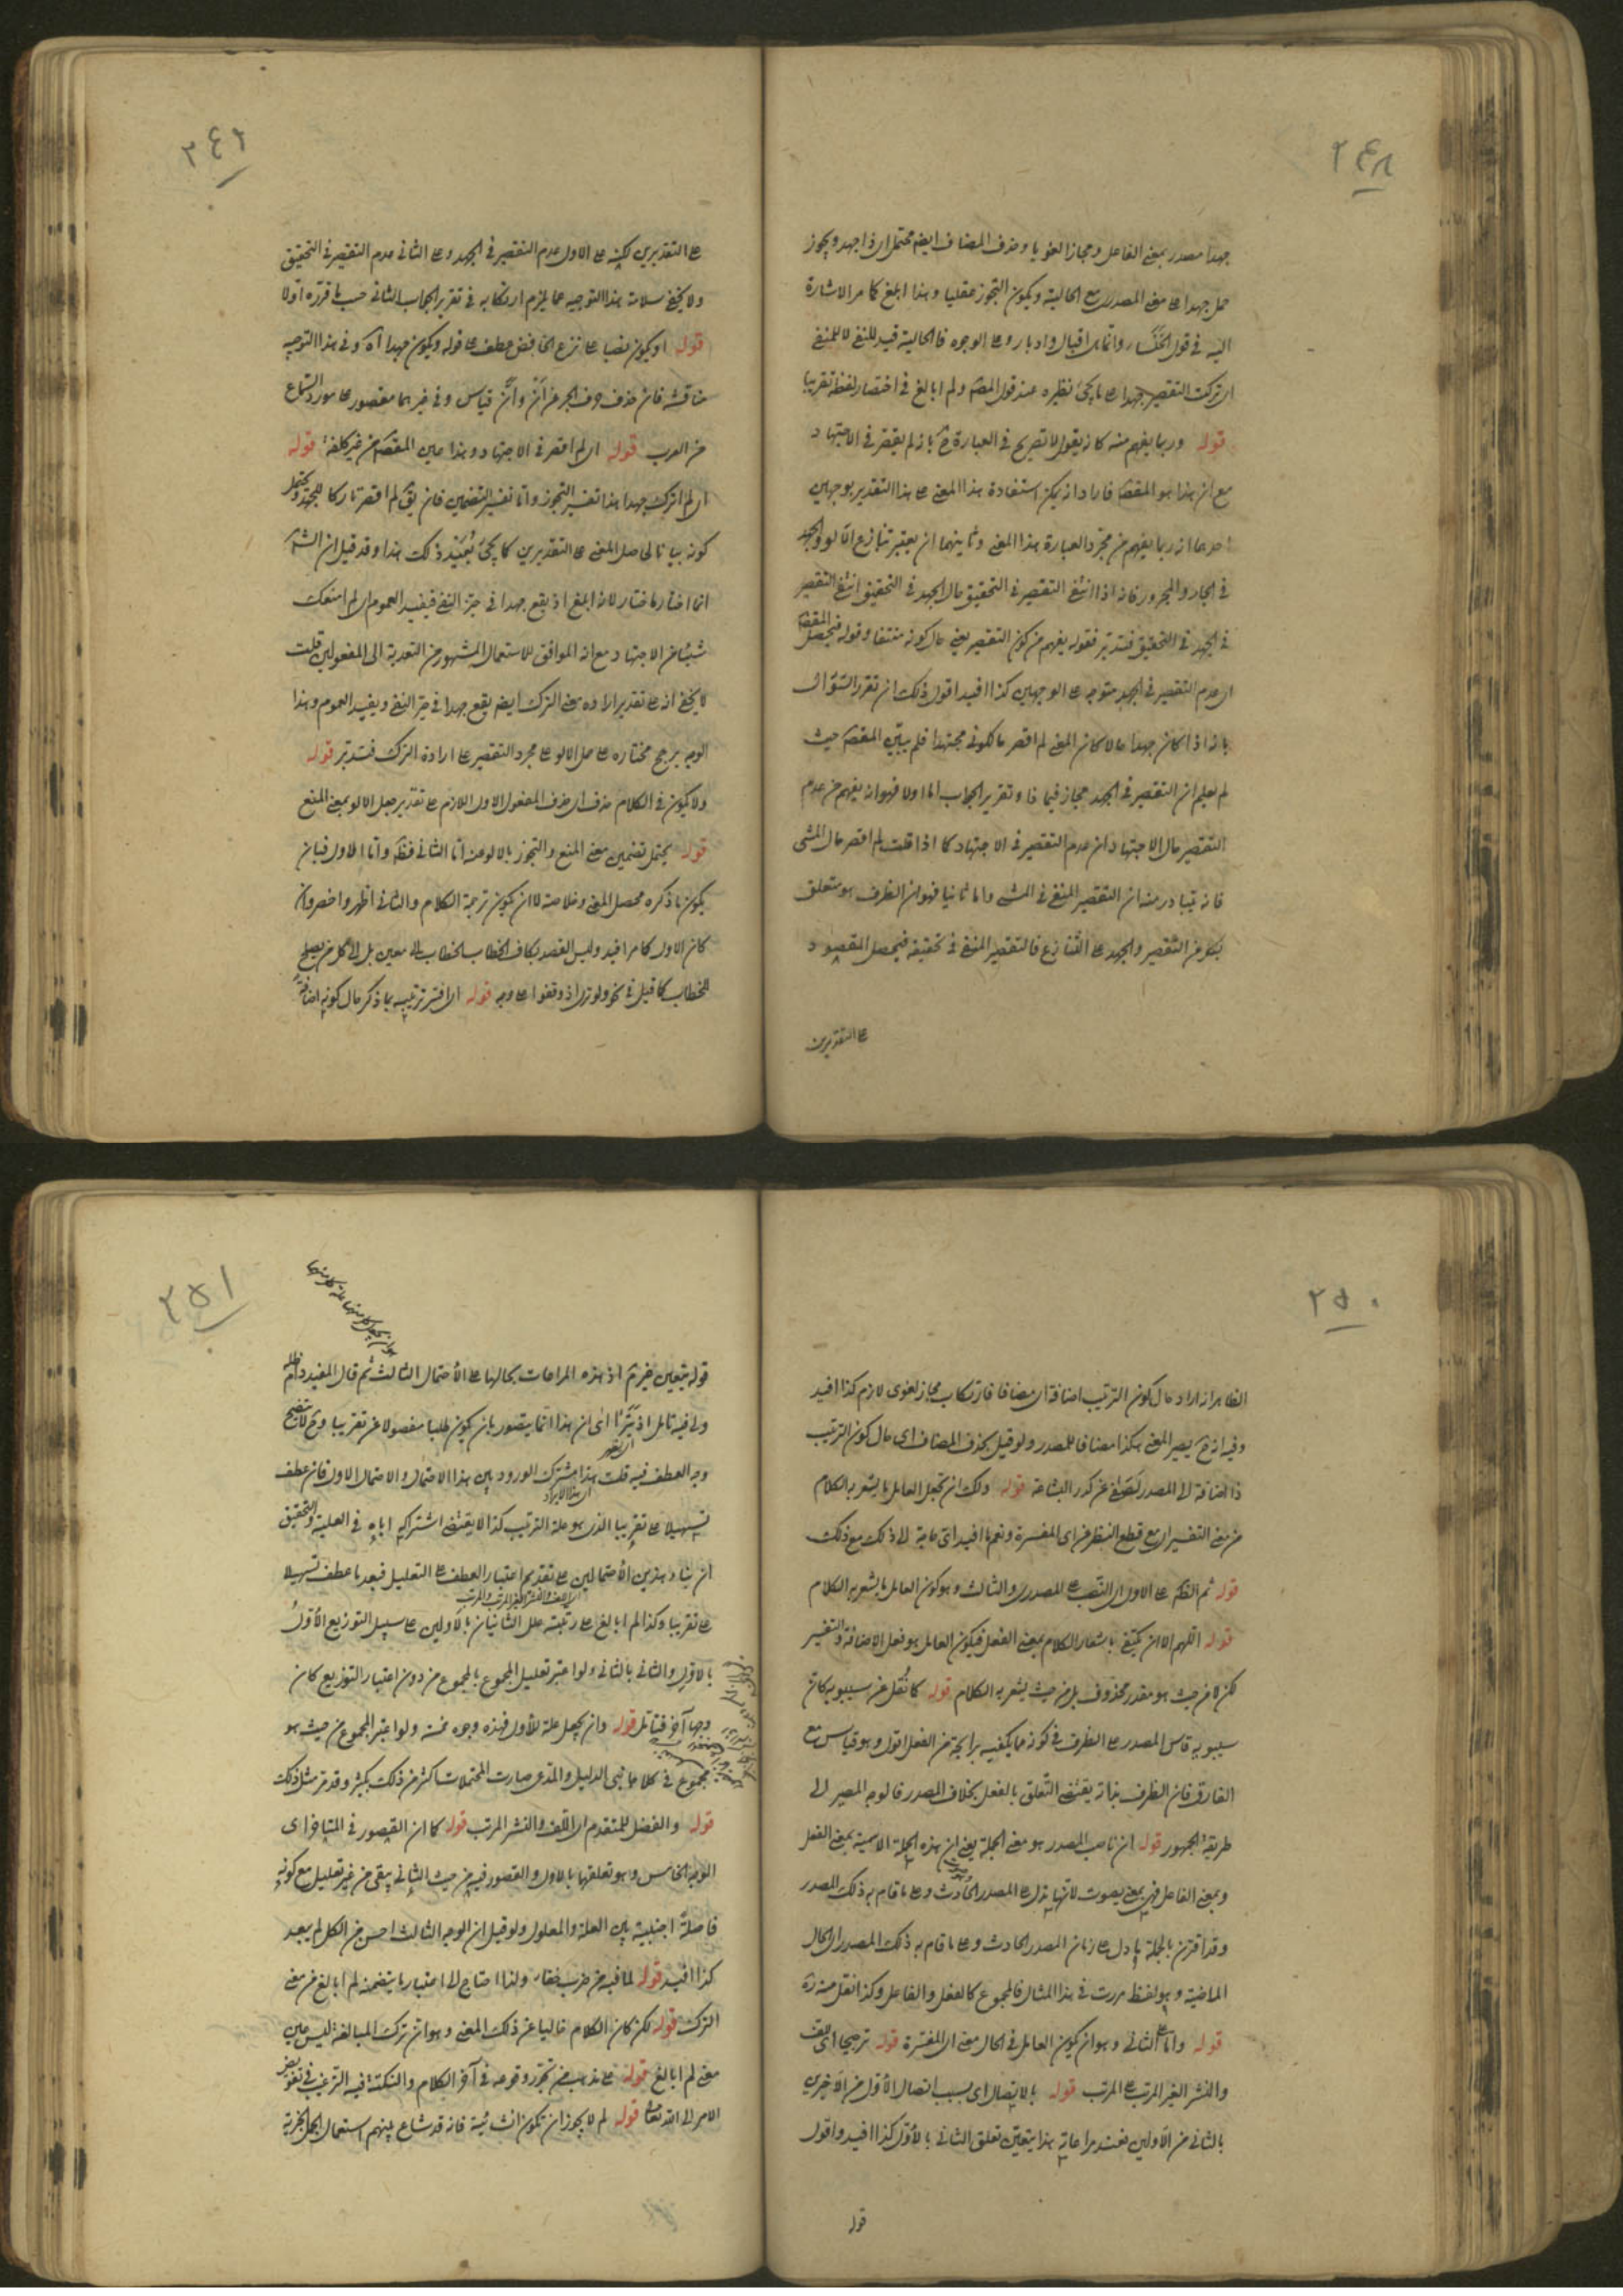 ٢٤٨
جهدا مصدر بمعنى الفاعل ومجازا لغويا وحذف المضاف ايضم محتمل اى ذا جهد ويجوز
حمل جهدا على معنى المصدر مع الحالية ويكون التجوز عقليا وهذا ابلغ كما مر الاشارة
اليه في قول الخنساء وانما هى اقبال وادبار وعلى الوجوه فالحالية قيد للنفى لا للمنفى
اى تركت التقصير جهدا على ما يجئ نظيره عند قول المصّ ولم ابالغ في اختصار لفظه تقريبا
قوله وربما يفهم منه كانه يقول لا تصريح في العبارة ح بانه لم يقصر في الاجتهاد
مع ان هذا هو المقصّ فاراد انه يمكن استفادة هذا المعنى على هذا التقدير بوجهين
احدهما انه ربما يفهم من مجرد العبارة هذا المعنى وثانيهما ان يعتبر تنازع آلو والجهد
في الجار والمجرور فانه اذا انتفى التقصير في التحقيق حال الجهد في التحقيق انتفى التقصير
في الجهد في التحقيق فتدبر فقوله يفهم من كون التقصير يعنى حال كونه منتفيا وقوله فيحصل المقصّ
اى عدم التقصير في الجهد متوجه على الوجهين كذا افيد اقول ذلك ان تقرر السّؤال
بانه اذا كان جهدا حالا كان المعنى لم اقصر حال كونى مجتهدا فلم يبيّن المقصّ حيث
لم يعلم ان التقصير في الجهد مجاز فيما ذا وتقرير الجواب اما اولا فهو انه يفهم من عدم
التقصير حال الاجتهاد ان عدم التقصير في الاجتهاد كما اذا قلت لم اقصر حال المشى
فانه يتبادر منه ان التقصير المنفى في المشى واما ثانيا فهو ان الظرف هو متعلق
بكل من التقصير والجهد على التنازع فالتقصير المنفى في تحقيقه فيحصل المقصود
على التقديرين
٢٤٩
على التقديرين لكنه على الاول عدم التقصير في الجهد وعلى الثانى عدم التقصير في التحقيق
ولا يخفى سلامة هذا التوجيه عما يلزم ارتكابه في تقرير الجواب الثانى حسب ما قرره اولا
قوله او يكون نصبا على نزع الخافض عطف على قوله ويكون جهدا اه وفى هذا التوجيه
مناقشة فان حذف حرف الجر عن اَنْ واَنَّ قياس وفى غيرهما مقصور على مورد السّماع
من العرب قوله اى لم اقصر في الاجتهاد وهذا عين المقصّ من غير كلفة قوله
اى لم اترك جهدا هذا تفسير التجوز واما تفسير التضمين فان يقّ لم اقصر تاركا للجهد ويحتمل
كونه بيانا لحاصل المعنى على التقديرين كما يجئ تمهيد ذلك هذا وقد قيل ان الشّ
انما اختار ما اختار لانه ابلغ اذ يقع جهدا في حيّز النفى فيفيد العموم اى لم امنعك
شيئا من الاجتهاد مع انه الموافق للاستعمال المشهور من التعدية الى المفعولين قلت
لا يخفى انه على تقدير ارادة معنى الترك ايضم يقع جهدا في حيز النفى ويفيد العموم وهذا
الوجه يرجح مختاره على حمل الالو على مجرد التقصير على ارادة الترك فتدبر قوله
ولا يكون في الكلام حذف اى حذف المفعول الاول اللازم على تقدير جعل الالو بمعنى المنع
قوله يحتمل تضمين معنى المنع والتجوز بالالو عنه اما الثانى فظّ واما الاول فبان
يكون ما ذكره محصل المعنى وخلاصته لا ان يكون ترجمة الكلام والثانى اظهر واخصر وان
كان الاول كما مر افيد وليس القصد بكاف الخطاب الخطاب الى معين بل الى كل من يصلح
للخطاب كما قيل في نحو ولو ترى اذ وقفوا على وجه قوله اى اقتر ترتيبه بما ذكر حال كونه اضافة
٢٥٠
الظاهر انه اراد حال كون الترتيب اضافة اى مضافا فارتكاب مجاز لغوى لازم كذا افيد
وفيه انه ح يصير المعنى هكذا مضافا للمصدر ولو قيل بحذف المضاف اى حال كون الترتيب
ذا اضافة الى المصدر لتصفى عن كدر البشاعة قوله ولك ان تجعل العامل ما يشعر به الكلام
من معنى التفسير اى مع قطع النظر عن اى المفسرة ونعم ما افيد اى حاجة الى ذلك مع ذلك
قوله ثم الظّ على الاول اى النّصب على المصدر والثالث وهو كون العامل ما يشعر به الكلام
قوله اللهم الا ان يكتفى باشعار الكلام بمعنى الفعل فيكون العامل هو فعل الاضافة والتفسير
لكن لا من حيث هو مقدر محذوف بل من حيث يشعر به الكلام قوله كما نُقل عن سيبويه كان
سيبويه قاس المصدر على الظرف في كونه مما يكفيه رايحة من الفعل اقول وهو قياس مع
الفارق فان الظرف بذاته يقتضى التّعلق بالفعل بخلاف المصدر فالوجه المصير الى
طريقة الجمهور قوله ان ناصب المصدر هو معنى الجملة يعنى ان هذه الجملة الاسمية بمعنى الفعل
وبمعنى الفاعل فهى بمعنى يصوت لانها تدل على المصدر الحادث وعلى ما قام به ذلك المصدر
وقد اقترن بالجملة ما دل على زمان المصدر الحادث وعلى ما قام به ذلك المصدر اى الحال
الماضية وهو لفظ مررت في هذا المثال فالمجموع كالفعل والفاعل وكذا نقل منه ره
قوله واما على الثانى وهو ان يكون العامل في الحال معنى اى المفسّرة قوله ترجيحا اى للّف
والنشر الغير المرتب على المرتب قوله بالاتصال اى بسبب اتصال الاوّل من الاخيرين
بالثانى من الاولين فعند مراعاته هذا يتعيّن تعلق الثانى بالاوّل كذا افيد واقول
قوله
٢٥١
قوله يتعين خبر ثم اذ هذه المراعات بحالها على الاحتمال الثالث ثم قال المفيد دام ظله
ولى فيه تامل اذ يترا‌ا اى ان هذا انما يتصور بان يكون طلبا مفصولا عن تقريبا وح لا يتضح
وجه العطف فيه قلت هذا مشترك الورود بين هذا الاحتمال والاحتمال الاول فان عطف
تسهيلا على تقريبا الذى هو علة الترتيب كذا لا يقتضى اشتراكه اياه في العلية والتحقيق
ان بناء هذين الاحتمالين على تقديم اعتبار العطف على التعليل فبعد ما عطف تسهيلا
على تقريبا وكذا لم ابالغ على رتبته علل الثانيان بالاولين على سبيل التوزيع الاوّلُ
بالاول والثانى بالثانى ولو اعتبر تعليل المجموع بالمجموع من دون اعتبار التوزيع كان
وجها آخر فتامل قوله وان يجعل علة للاول فهذه وجوه خمسة ولو اعتبر المجموع من حيث هو
مجموع في كلا جانبى الدليل والمدّعى صارت المحتملات اكثر من ذلك بكثير وقد مر مثل ذلك
قوله والفضل للمتقدم اى اللّف والنشر المرتب قوله كما ان القصور في المتاخر اى
الوجه الخامس وهو تعلقها بالاول والقصور فيه من حيث الثانى يبقى من غير تعليل مع كونه
فاصلة اجنبية بين العلة والمعلول ولو قيل ان الوجه الثالث احسن من الكل لم يبعد
كذا افيد قوله لما فيه من ضرب خفاء ولذا احتاج الى اعتبار ما يتضمنه لم ابالغ من معنى
الترك قوله لكن كان الكلام خاليا عن ذلك المعنى وهو ان ترك المبالغة ليس عين
معنى لم ابالغ قوله على مذهب من تجوز وقوعه في آخر الكلام والنكتة فيه الترغيب في تفويض
الامر الى الله تعالى قوله لم لا يجوز ان تكون انشائية فانه قد شاع بينهم استعمال الجمل الخبرية